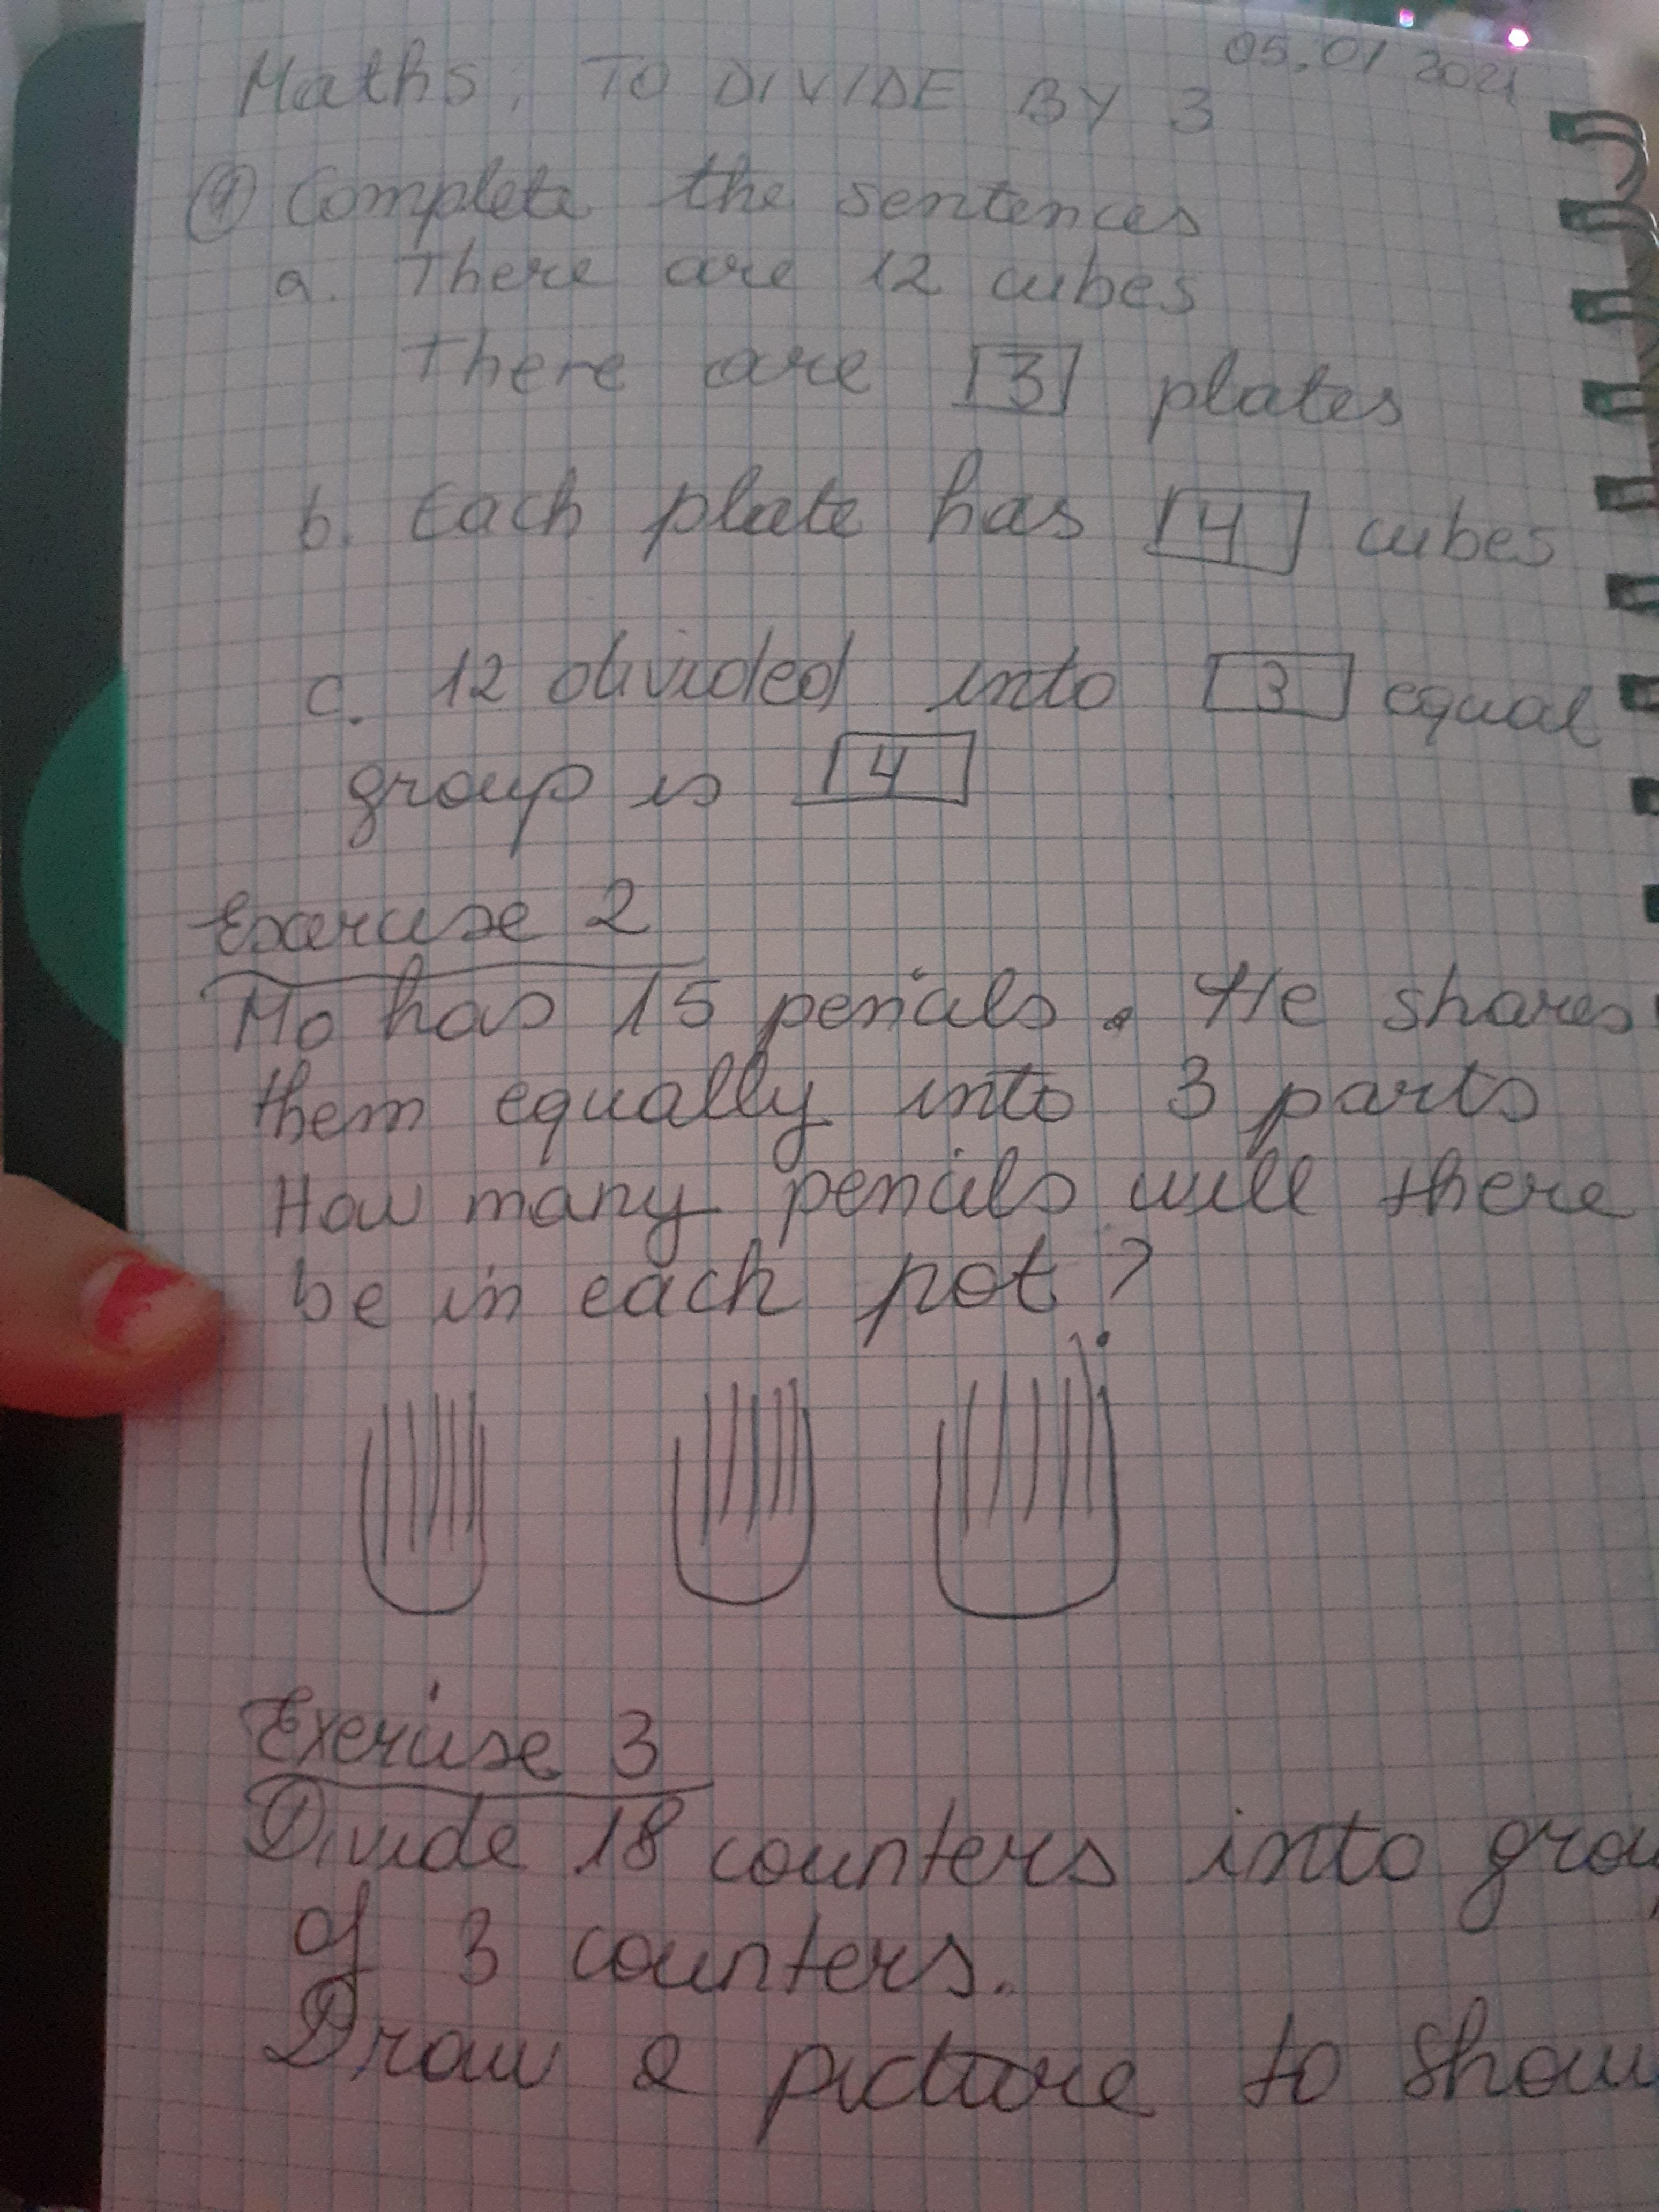 05.01 2021
Maths: TO DIVIDE BY 3
① Complete the sentences
a. There are 12 cubes
There are 3 plates
b. Each plate has 4 cubes
c. 12 divided into 3 equal
group is 4
Exercise 2
Mo has 15 pencils. He shares
them equally into 3 parts
How many pencils will there
be in each pot?
Exercise 3
Divide 18 counters into
of 3 counters.
Draw a picture to show